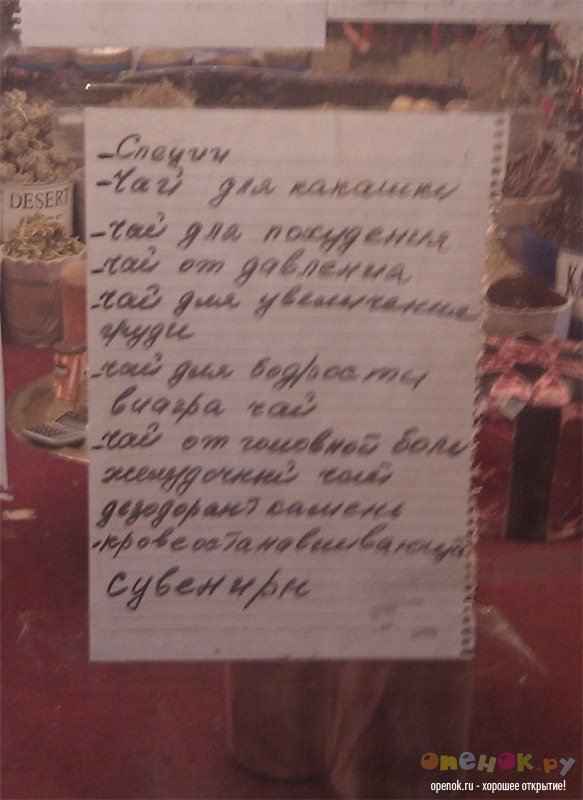 DESERT
-Специи
-Чай для какашки
-чай для похудения
-чай от давления
-чай для увеличения
груди
-чай для бодрости
виагра чай
-чай от головной боли
желудочный чай
дезодорант камень
-кровеостанавливающий
сувениры
опенок.ру
openok.ru - хорошее открытие!